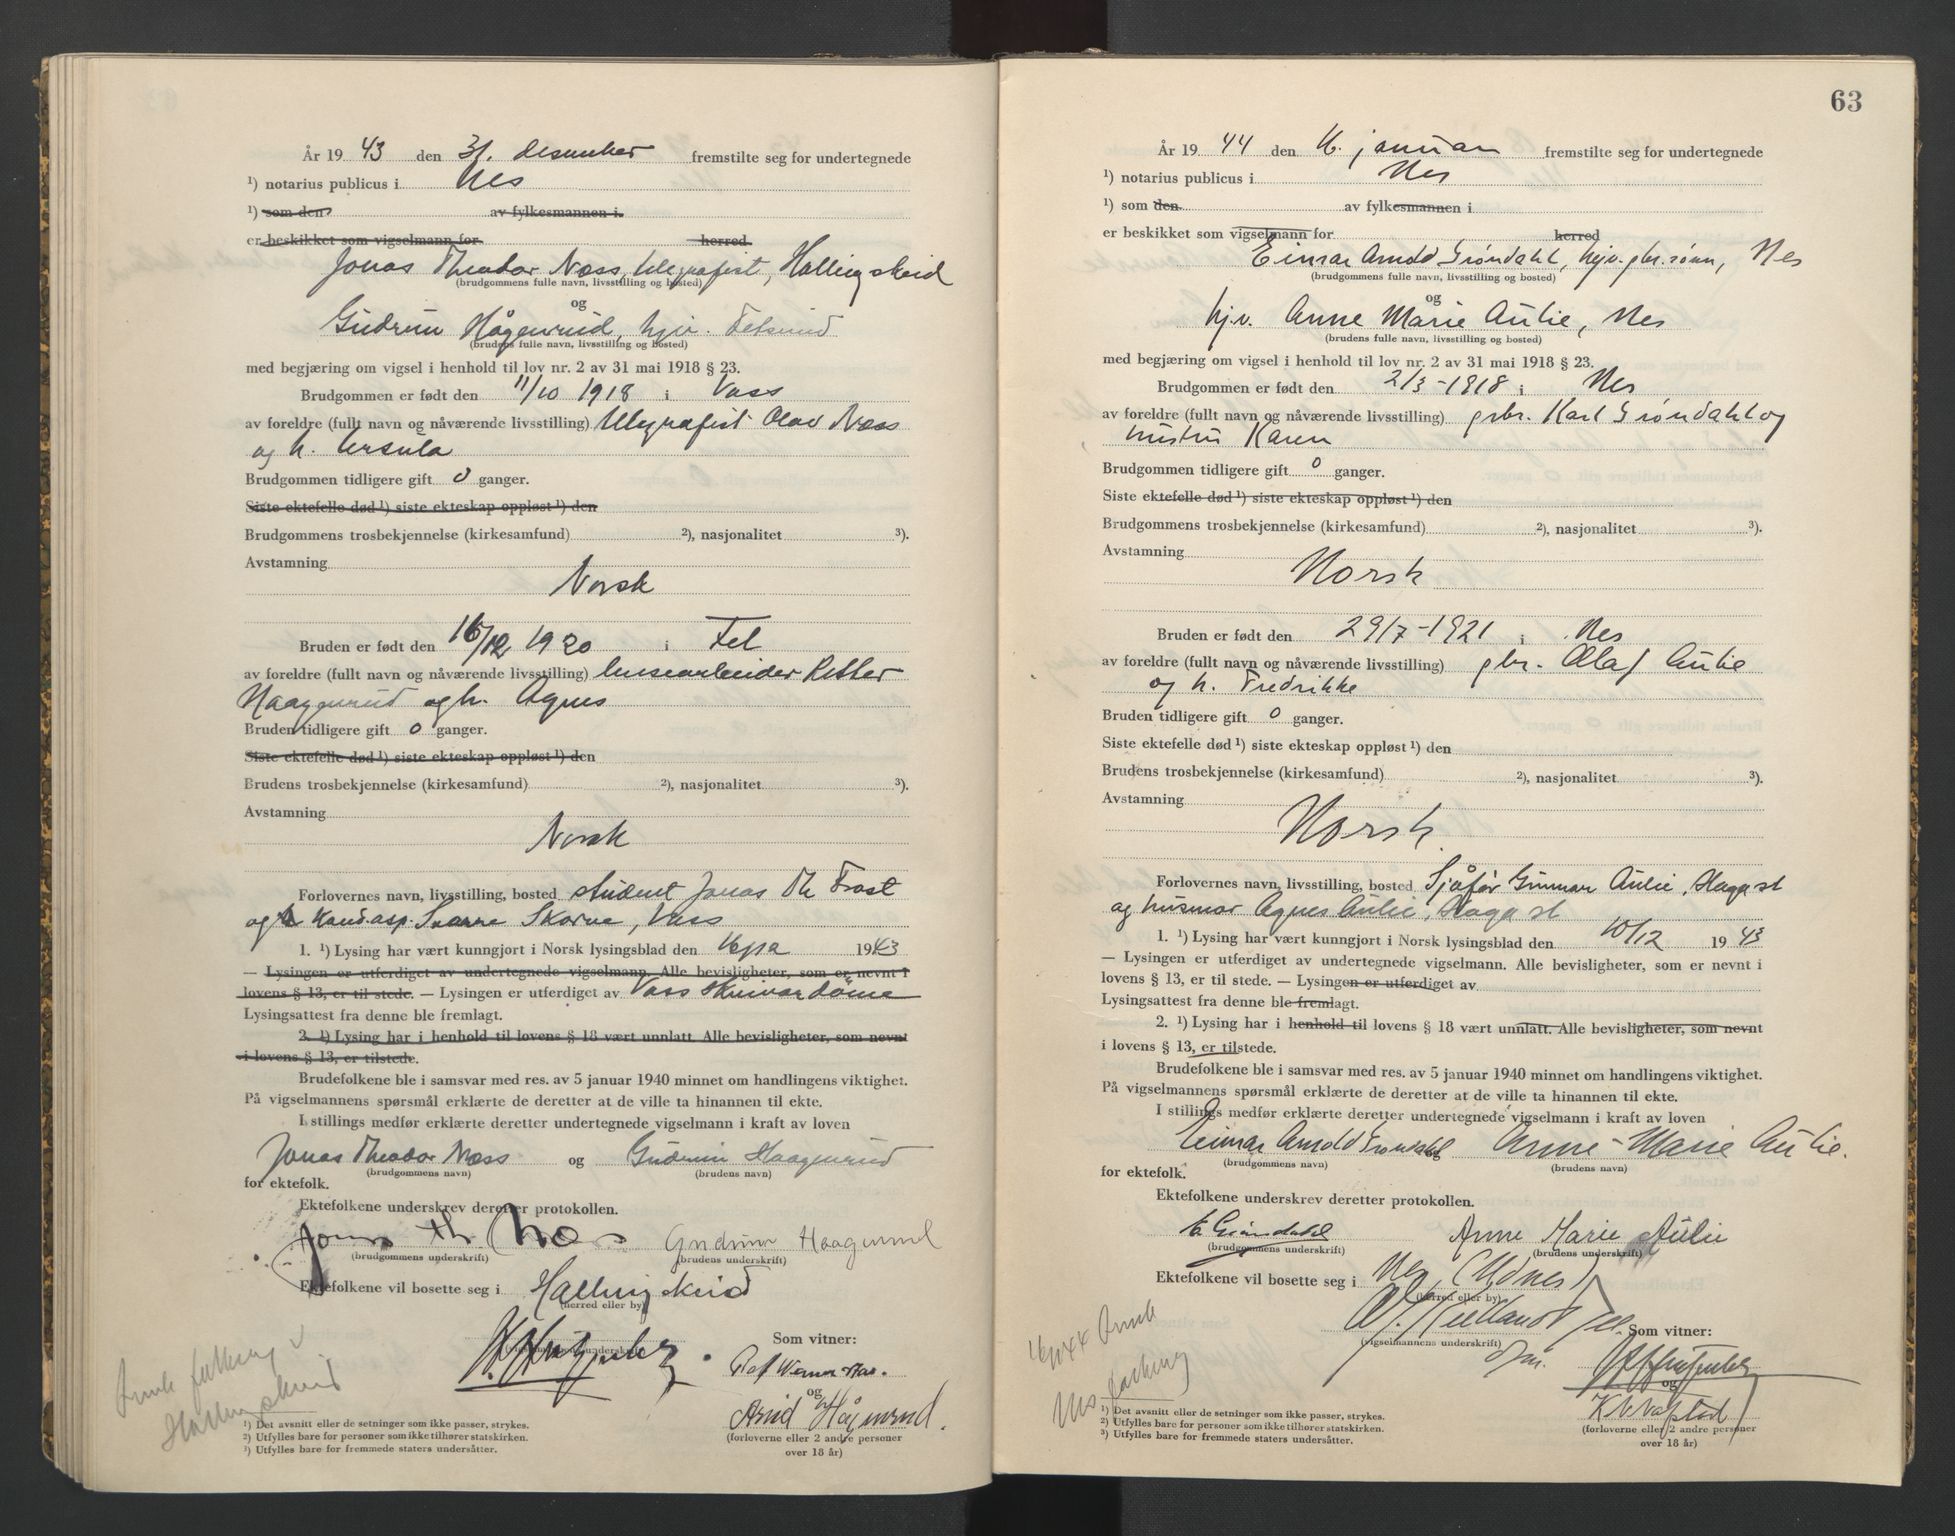 År 19 43 den 31. desember fremstilte seg for undertegnede
¹) notarius publicus i Nes
¹) som den av fylkesmannen i
er beskikket som vigselmann for herred
Jonas Theodor Næss, telegrafist, Hallingskeid
(brudgommens fulle navn, livsstilling og bosted)
og
Gudrun Hågenrud, hjv. Fetsund
(brudens fulle navn, livsstilling og bosted)
med begjæring om vigsel i henhold til lov nr. 2 av 31 mai 1918 § 23.
Brudgommen er født den 11/10 1918 i Voss
av foreldre (fullt navn og nåværende livsstilling) telegrafist Olav Næss
og h. Ursula
Brudgommen tidligere gift 0 ganger.
Siste ektefelle død ¹) siste ekteskap oppløst ¹) den
Brudgommens trosbekjennelse (kirkesamfund) ²), nasjonalitet ³).
Avstamning
Norsk
Bruden er født den 16/12 1920 i Fet
av foreldre (fullt navn og nåværende livsstilling) lensearbeider Petter
Haagenrud og h. Agnes
Bruden tidligere gift 0 ganger.
Siste ektefelle død ¹) siste ekteskap oppløst ¹) den
Brudens trosbekjennelse (kirkesamfund) ²), nasjonalitet ³).
Avstamning
Norsk
Forlovernes navn, livsstilling, bosted student Jonas Th Frost
og kand.asp. Sverre Skorve, Voss
1. ¹) Lysing har vært kunngjort i Norsk lysingsblad den 1943
— Lysingen er utferdiget av undertegnede vigselmann. Alle bevisligheter, som er nevnt i
lovens § 13, er til stede. — Lysingen er utferdiget av Voss skrivardøme
Lysingsattest fra denne ble fremlagt.
2. ¹) Lysing har i henhold til lovens § 18 vært unnlatt. Alle bevisligheter, som nevnt
i lovens § 13, er tilstede.
Brudefolkene ble i samsvar med res. av 5 januar 1940 minnet om handlingens viktighet.
På vigselmannens spørsmål erklærte de deretter at de ville ta hinannen til ekte.
I stillings medfør erklærte deretter undertegnede vigselmann i kraft av loven
Jonas Theodor Næss og Gudrun Haagenrud
(brudgommens navn) (brudens navn)
for ektefolk.
Ektefolkene underskrev deretter protokollen.
Jonas Th Næss Gudrun Haagenrud
(brudgommens underskrift) (brudens underskrift)
Ektefolkene vil bosette seg i Hallingskeid
(herred eller by)
Som vitner:
(vigselmannens underskrift)
og
Arvid Hågenrud.
(forloverne eller 2 andre personer
over 18 år)
Hallingskeid
¹) Det avsnitt eller de setninger som ikke passer, strykes.
²) Utfylles bare for personer som ikke tilhører statskirken.
³) Utfylles bare for fremmede staters undersåtter.
63
År 19 44 den januar fremstilte seg for undertegnede
¹) notarius publicus i Nes
¹) som den av fylkesmannen i
er beskikket som vigselmann for herred
Einar Arnold Grøndahl, hjv. gbr.sønn, Nes
(brudgommens fulle navn, livsstilling og bosted)
og
hj.v. Anne Marie Aulie, Nes
(brudens fulle navn, livsstilling og bosted)
med begjæring om vigsel i henhold til lov nr. 2 av 31 mai 1918 § 23.
Brudgommen er født den 2/3-1918 i Nes
av foreldre (fullt navn og nåværende livsstilling) gbr. Karl Grøndahl og
hustru Karen
Brudgommen tidligere gift 0 ganger.
Siste ektefelle død ¹) siste ekteskap oppløst ¹) den
Brudgommens trosbekjennelse (kirkesamfund) ²), nasjonalitet ³).
Avstamning
Norsk
Bruden er født den 29/7-1921 i Nes
av foreldre (fullt navn og nåværende livsstilling) gbr. Olaf Aulie
og h. Fredrikke
Bruden tidligere gift 0 ganger.
Siste ektefelle død ¹) siste ekteskap oppløst ¹) den
Brudens trosbekjennelse (kirkesamfund) ²), nasjonalitet ³).
Avstamning
Norsk
Forlovernes navn, livsstilling, bosted Sjåfør Gunnar Aulie, Haga st
og husmor Agnes Aulie, Haga st
1. ¹) Lysing har vært kunngjort i Norsk lysingsblad den 10/12 1943
— Lysingen er utferdiget av undertegnede vigselmann. Alle bevisligheter, som er nevnt i
lovens § 13, er til stede. — Lysingen er utferdiget av
Lysingsattest fra denne ble fremlagt.
2. ¹) Lysing har i henhold til lovens § 18 vært unnlatt. Alle bevisligheter, som nevnt
i lovens § 13, er tilstede.
Brudefolkene ble i samsvar med res. av 5 januar 1940 minnet om handlingens viktighet.
På vigselmannens spørsmål erklærte de deretter at de ville ta hinannen til ekte.
I stillings medfør erklærte deretter undertegnede vigselmann i kraft av loven
Einar Arnold Grøndahl og Anne-Marie Aulie.
(brudgommens navn) (brudens navn)
for ektefolk.
Ektefolkene underskrev deretter protokollen.
E Grøndahl Anne Marie Aulie
(brudgommens underskrift) (brudens underskrift)
Ektefolkene vil bosette seg i Nes, (Udnes)
(herred eller by)
Kielland
Som vitner:
(vigselmannens underskrift)
og
(forloverne eller 2 andre personer
over 18 år)
Nes
¹) Det avsnitt eller de setninger som ikke passer, strykes.
²) Utfylles bare for personer som ikke tilhører statskirken.
³) Utfylles bare for fremmede staters undersåtter.